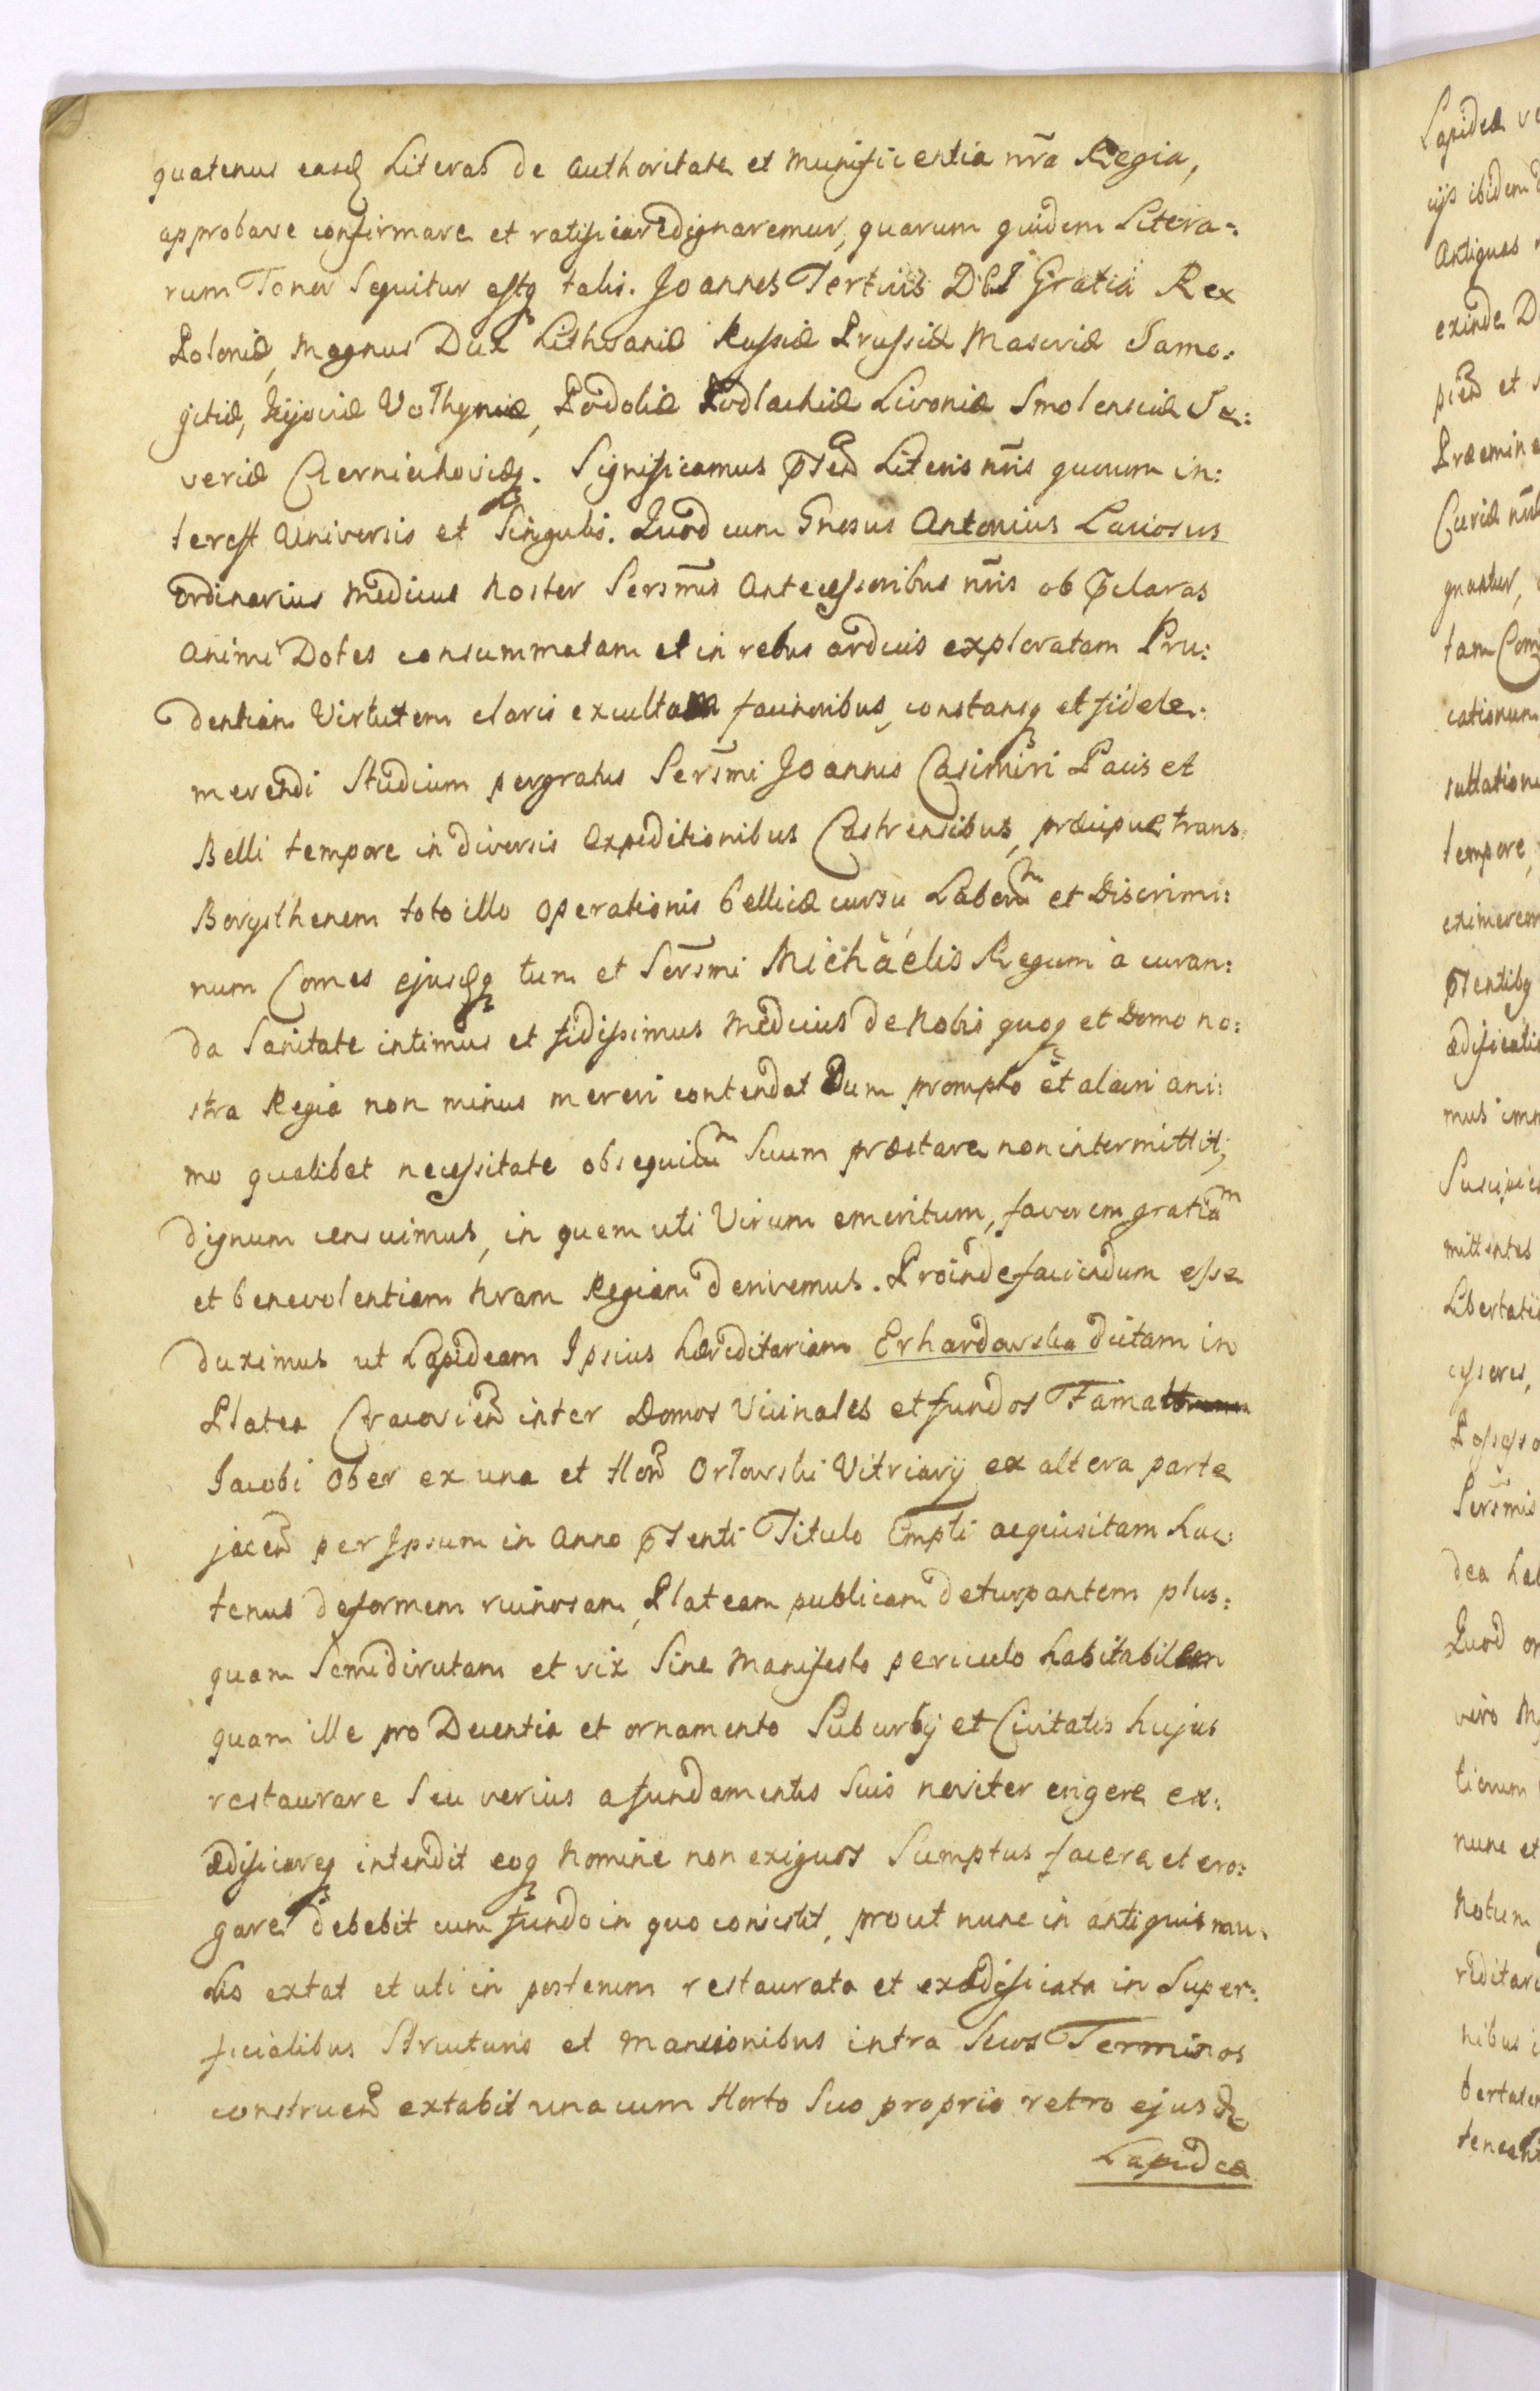 quatenus easd Literas de authoritate et munificentia nr̃a Regia,
approbare confirmare et ratificare dignaremur, quarum quidem Litera:
rum Tenor Sequitur estq talis. Joannes Tertius DEI Gratiâ Rex
Poloniæ, Magnus Dux Lithvaniæ Russiæ Prussiæ Masoviæ Samo:
gitiæ, Kijoviæ Volhyniæ, Podoliæ Podlachiæ Livoniæ Smolensciæ Se:
veriæ Czerniechoviæq. Significamus p̄sen Literis nr̃is quorum in:
terest Universis et Singulis. Quod cum Gnosus Antonius Lauiosus
ordinarius Medicus noster Sers̃mis Antecessoribus nr̃is ob p̄claras
animi Dotes consummatam et in rebus arduis exploratam Pru:
dentiam Virtutem claris excultam facinoribus, constansq et fidele
merendi Studium pergratus Sers̃mi Joannis Casimiri Pacis et
Belli tempore in diversis Expeditionibus Castrensibus, præcipue trans
Borysthenem toto illo operationis bellicæ cursu Laborum et Discrimi:
num Comes ejusdq tum et Sers̃mi Michaelis Regum à curan:
da Sanitate intimus et fidissimus Medicus de Nobis quoq et Domo no:
stra Regia non minus mereri contendat Dum prompto et alacri ani:
mo qualibet necessitate obsequium Suum præstare non intermittit,
dignum censuimus, in quem uti Virum emeritum, favorem gratiam
et benevolentiam nram Regiam derivemus. Proinde faciendum esse
duximus ut Lapideam Ipsius hæreditariam Erhardowska dictam in
Platea Cracovien inter Domos Vicinales et fundos Fama
Jacobi Ober ex una et Hon Orłowski Vitriarij ex altera parte
jacen per Ipsum in Anno p̄senti Titulo Empti acquisitam hac
tenus deformem ruinosam, Plateam publicam deturpantem plus:
quam Semidirutam et vix Sine Manifesto periculo habitabilem
quam ille pro Decentia et ornamento Suburbij et Civitatis hujus
restaurare Seu verius a fundamentis Suis noviter erigere ex:
ædificareq intendit eoq Nomine non exiguos Sumptus facere et ero:
gare debebit cum fundo in quo consistit, prout nunc in antiquis mu:
ris extat et uti in posterum restaurata et exædificata in Super:
ficialibus Structuris et Mansionibus intra Suos Terminos
construen extabit una cum Horto Suo proprio retro ejusd
Lapideæ